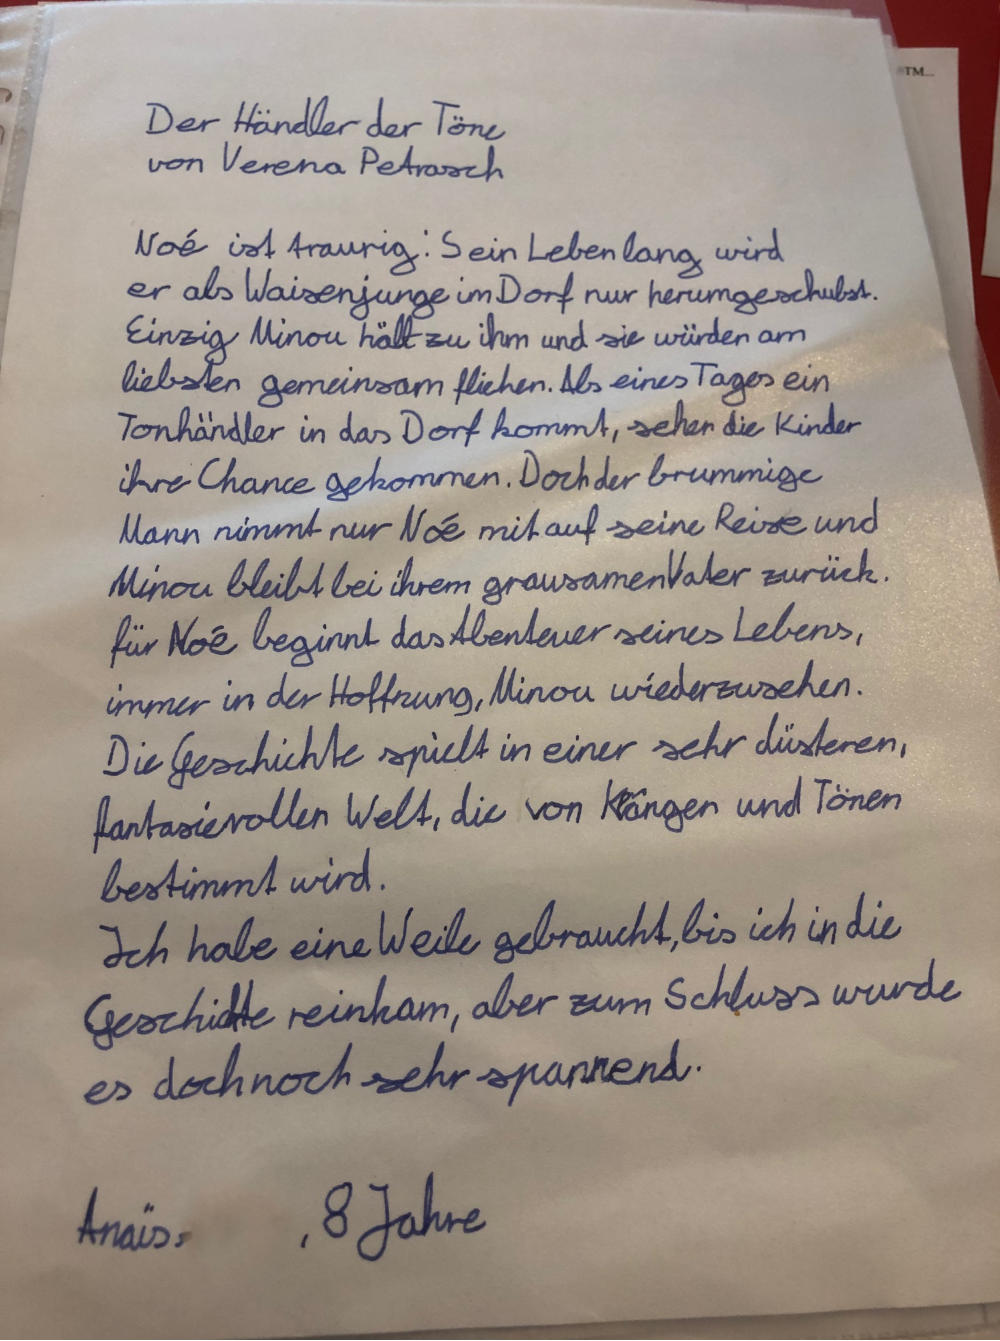 TM...
Der Händler der Töne
von Verena Petrasch
Noé ist traurig: Sein Leben lang wird
er als Waisenjunge im Dorf nur herumgeschubst.
Einzig Minou hält zu ihm und sie würden am
liebsten gemeinsam fliehen. Als eines Tages ein
Tonhändler in das Dorf kommt, sehen die Kinder
ihre Chance gekommen. Doch der brummige
Mann nimmt nur Noé mit auf seine Reise und
Minou bleibt bei ihrem grausamen Vater zurück.
für Noé beginnt das Abenteuer seines Lebens,
immer in der Hoffnung, Minou wiederzusehen.
Die Geschichte spielt in einer sehr düsteren,
fantasievollen Welt, die von Klängen und Tönen
bestimmt wird.
Ich habe eine Weile gebraucht, bis ich in die
Geschichte reinkam, aber zum Schluss wurde
es doch noch sehr spannend.
Anaïs , 8 Jahre